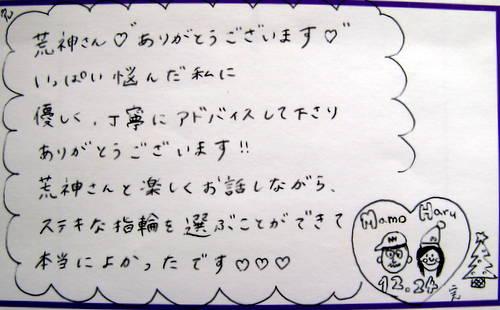 荒神さん♡"ありがとうございます♡"
いっぱい悩んだ私に
優しく、丁寧にアドバイスして下さり
ありがとうございます!!
荒神さんと楽しくお話しながら、
ステキな指輪を選ぶことができて
本当によかったです♡♡♡
Mamo Haru
12.24